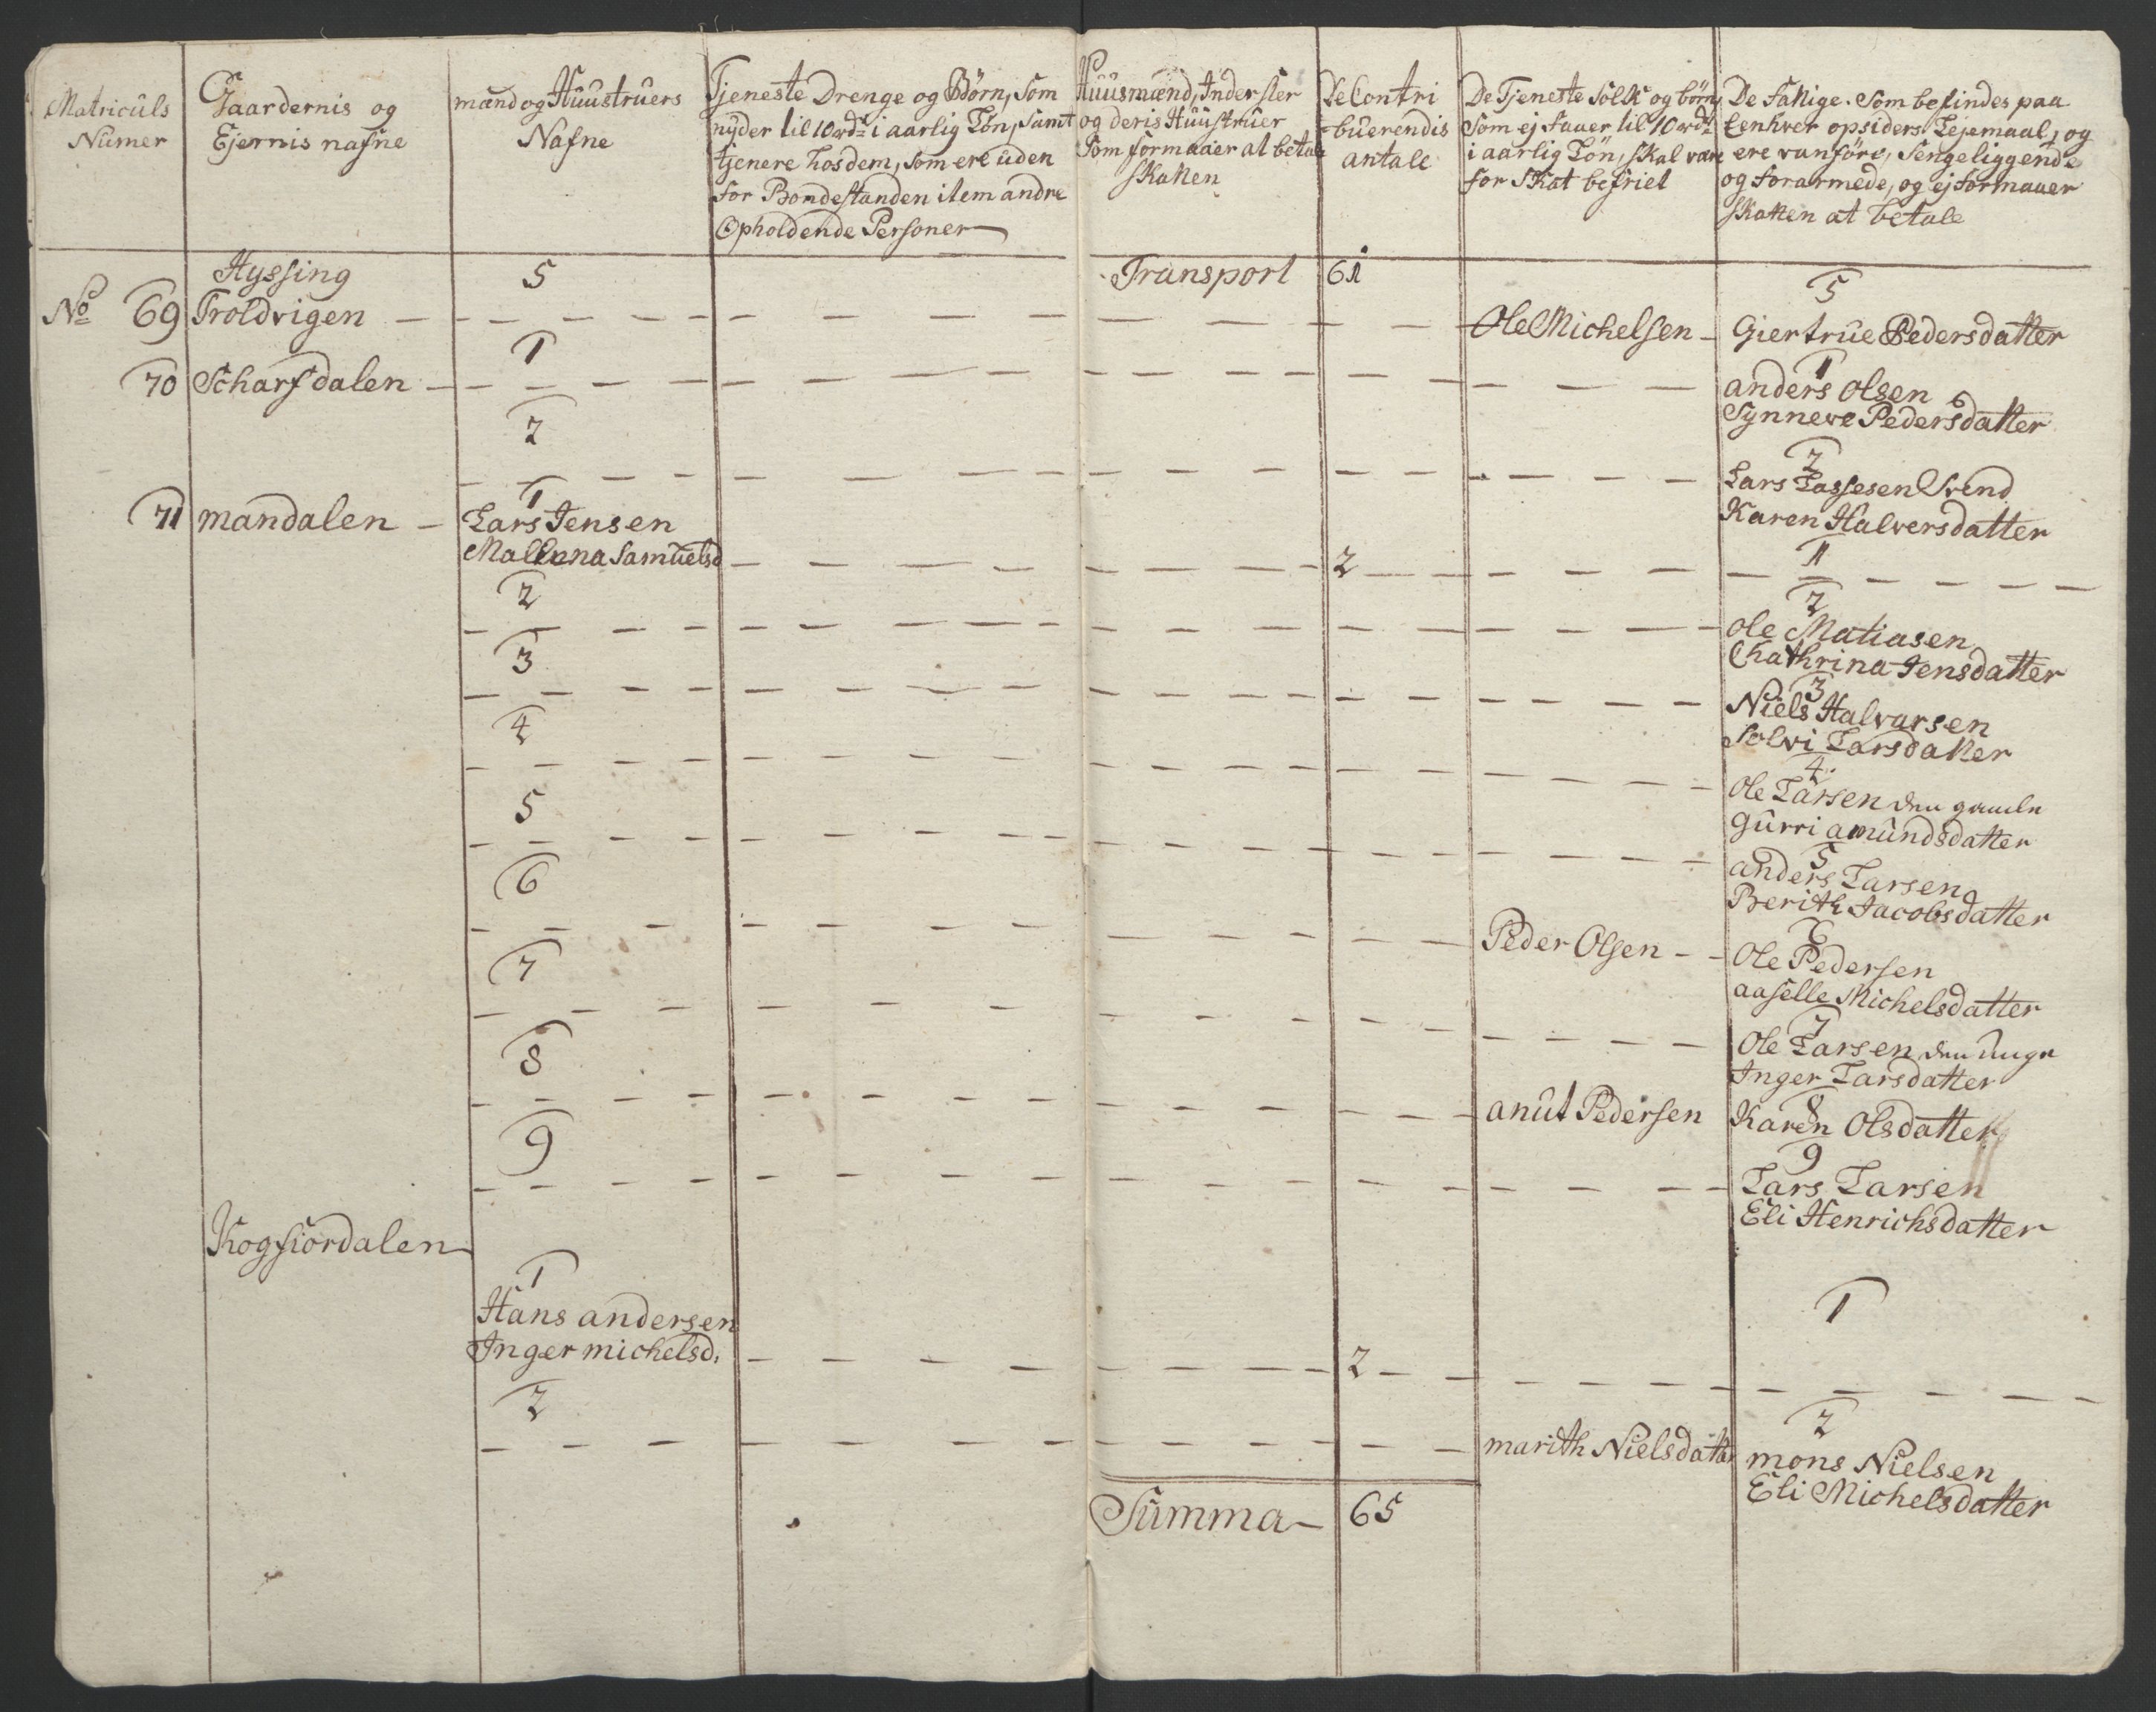 Matriculs
Numer
Gaardernis og
Ejernis nafne
mænd og Huustruers
Nafne
Tjeneste Drenge og Börn, Som
nyder til 10 rdr i aarlig Lön, samt
tjenere hos dem, som ere uden
for Bondestanden item andre
Opholdende Personer
Huusmænd, Inderster
og deris Huustruer
Som formaaer at betale
skatten
De Contri
-buerendis
antale
De Tjeneste folk og börn,
Som ej faaer til 10 rdr
i aarlig Lön, skal være
for Skat befriet
De Fattige. Som befindes paa
Eenhver opsiders Lejemaal, og
ere vanföre, Sengeliggende
og forarmede, og ej formaaer
skatten at betale
Hyssing
5
Transport 61
5
No 69 Troldvigen
Ole Michelsen
Giertrue Pedersdatter
1
1
70 Scharfdalen
anders Olsen
Synneve Pedersdatter
2
2
Lars Lassesen Svend
Karen Halversdatter
1
1
71 mandalen
Lars Jensen
Malenna Samuelsd
2
2
2
Ole Matiasen
Chathrina Jensdatter
3
3
Niels Halvarsen
Solvi Larsdatter
4
4
Ole Larsen den gamle
Gurri amundsdatter
5
5
anders Larsen
Berith Jacobsdatter
6
6
Peder Olsen
Ole Pedersen
aaselle Michelsdatter
7
7
Ole Larsen den unge
Inger Larsdatter
8
8
anut Pedersen
Karen Olsdatter
9
9
Lars Larsen
Eli Henrichsdatter
Kogfiordalen
1
1
Hans andersen
Inger michelsd.
2
2
2
marith Nielsdatter
mons Nielsen
Eli Michelsdatter
Summa 65